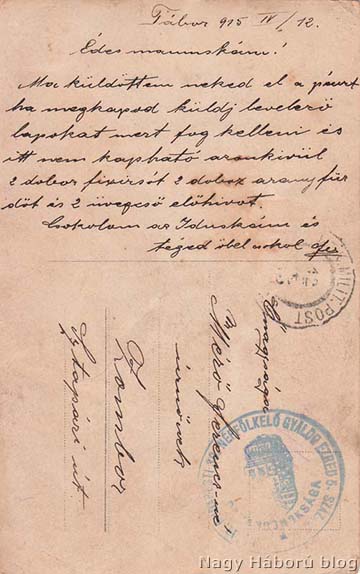 Tábor 915 IV/12.
Édes mamuskám!
Ma küldöttem neked el a pénzt
ha megkapod küldj levelező
lapokat mert fog kelleni és
itt nem kapható azonkivül
2 doboz fixirsót 2 doboz aranyfür
dőt és 2 üvegcső előhivót.
Csokolom az Iduskám és
téged ölel csókol
MILIT. POST
Nagyságos
Mérő Ferencz-né
úrnőnek
Zombor
Sztapári út
NÉPFÖLKELŐ GYALOG EZRED 5. SZÁZ
Nagy Háború blog